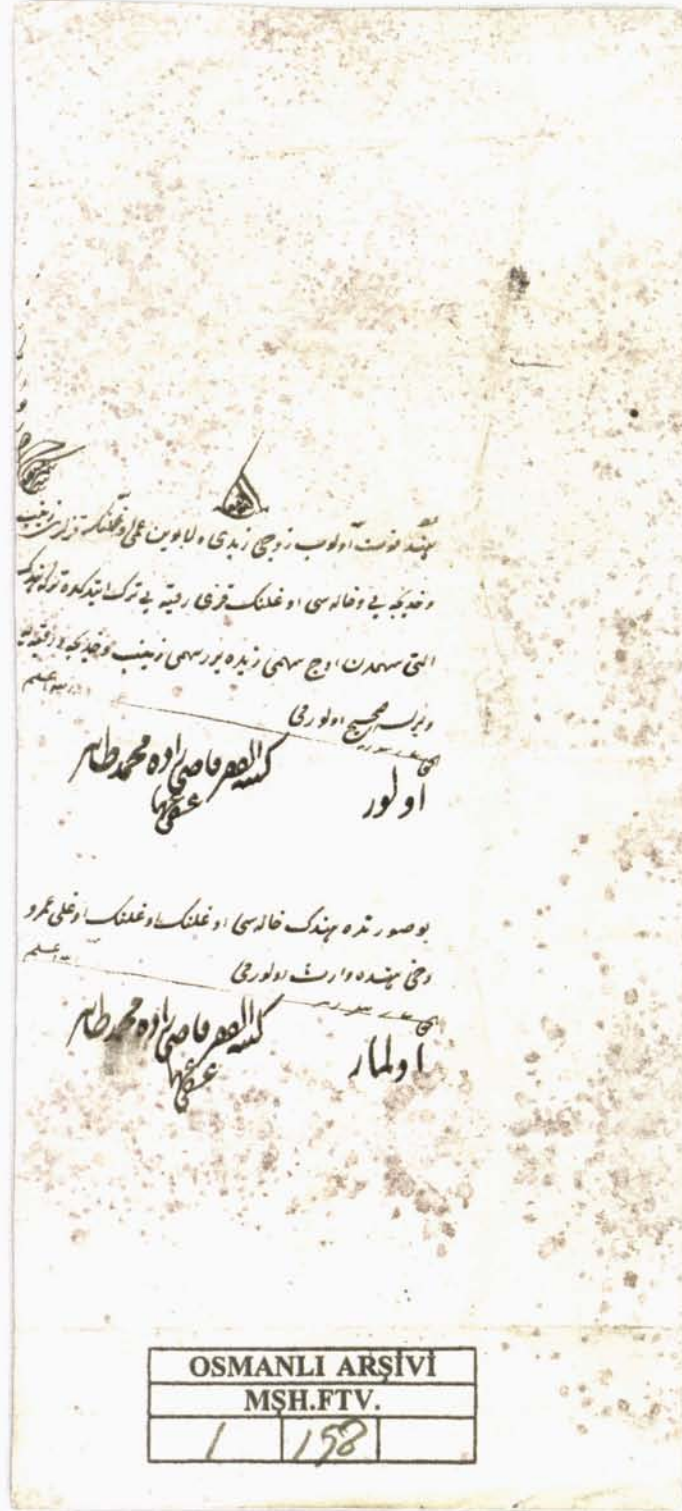 هند فوت اولوب زوجی زیدی و لابوین عمی اوغلنک قزلری زینب
و خدیجه یی و خاله سی اوغلنک قزی رقیه یی ترک ایتدکده ترکه هندک
التی سهمدن اوچ سهمی زیده برر سهمی زینب و خدیجه و رقیه یه
ویرلسه صحیح اولورمی
الله اعلم
اولور
كتبه الفقیر قاضی زاده محمد طاهر
عفی عنها
بو صورتده هندک خاله سی اوغلنک اوغلنک اوغلی عمرو
دخی هنده وارث اولورمی
الله اعلم
اولماز
كتبه الفقیر قاضی زاده محمد طاهر
عفی عنها
OSMANLI ARŞİVİ
MŞH.FTV.
1 198